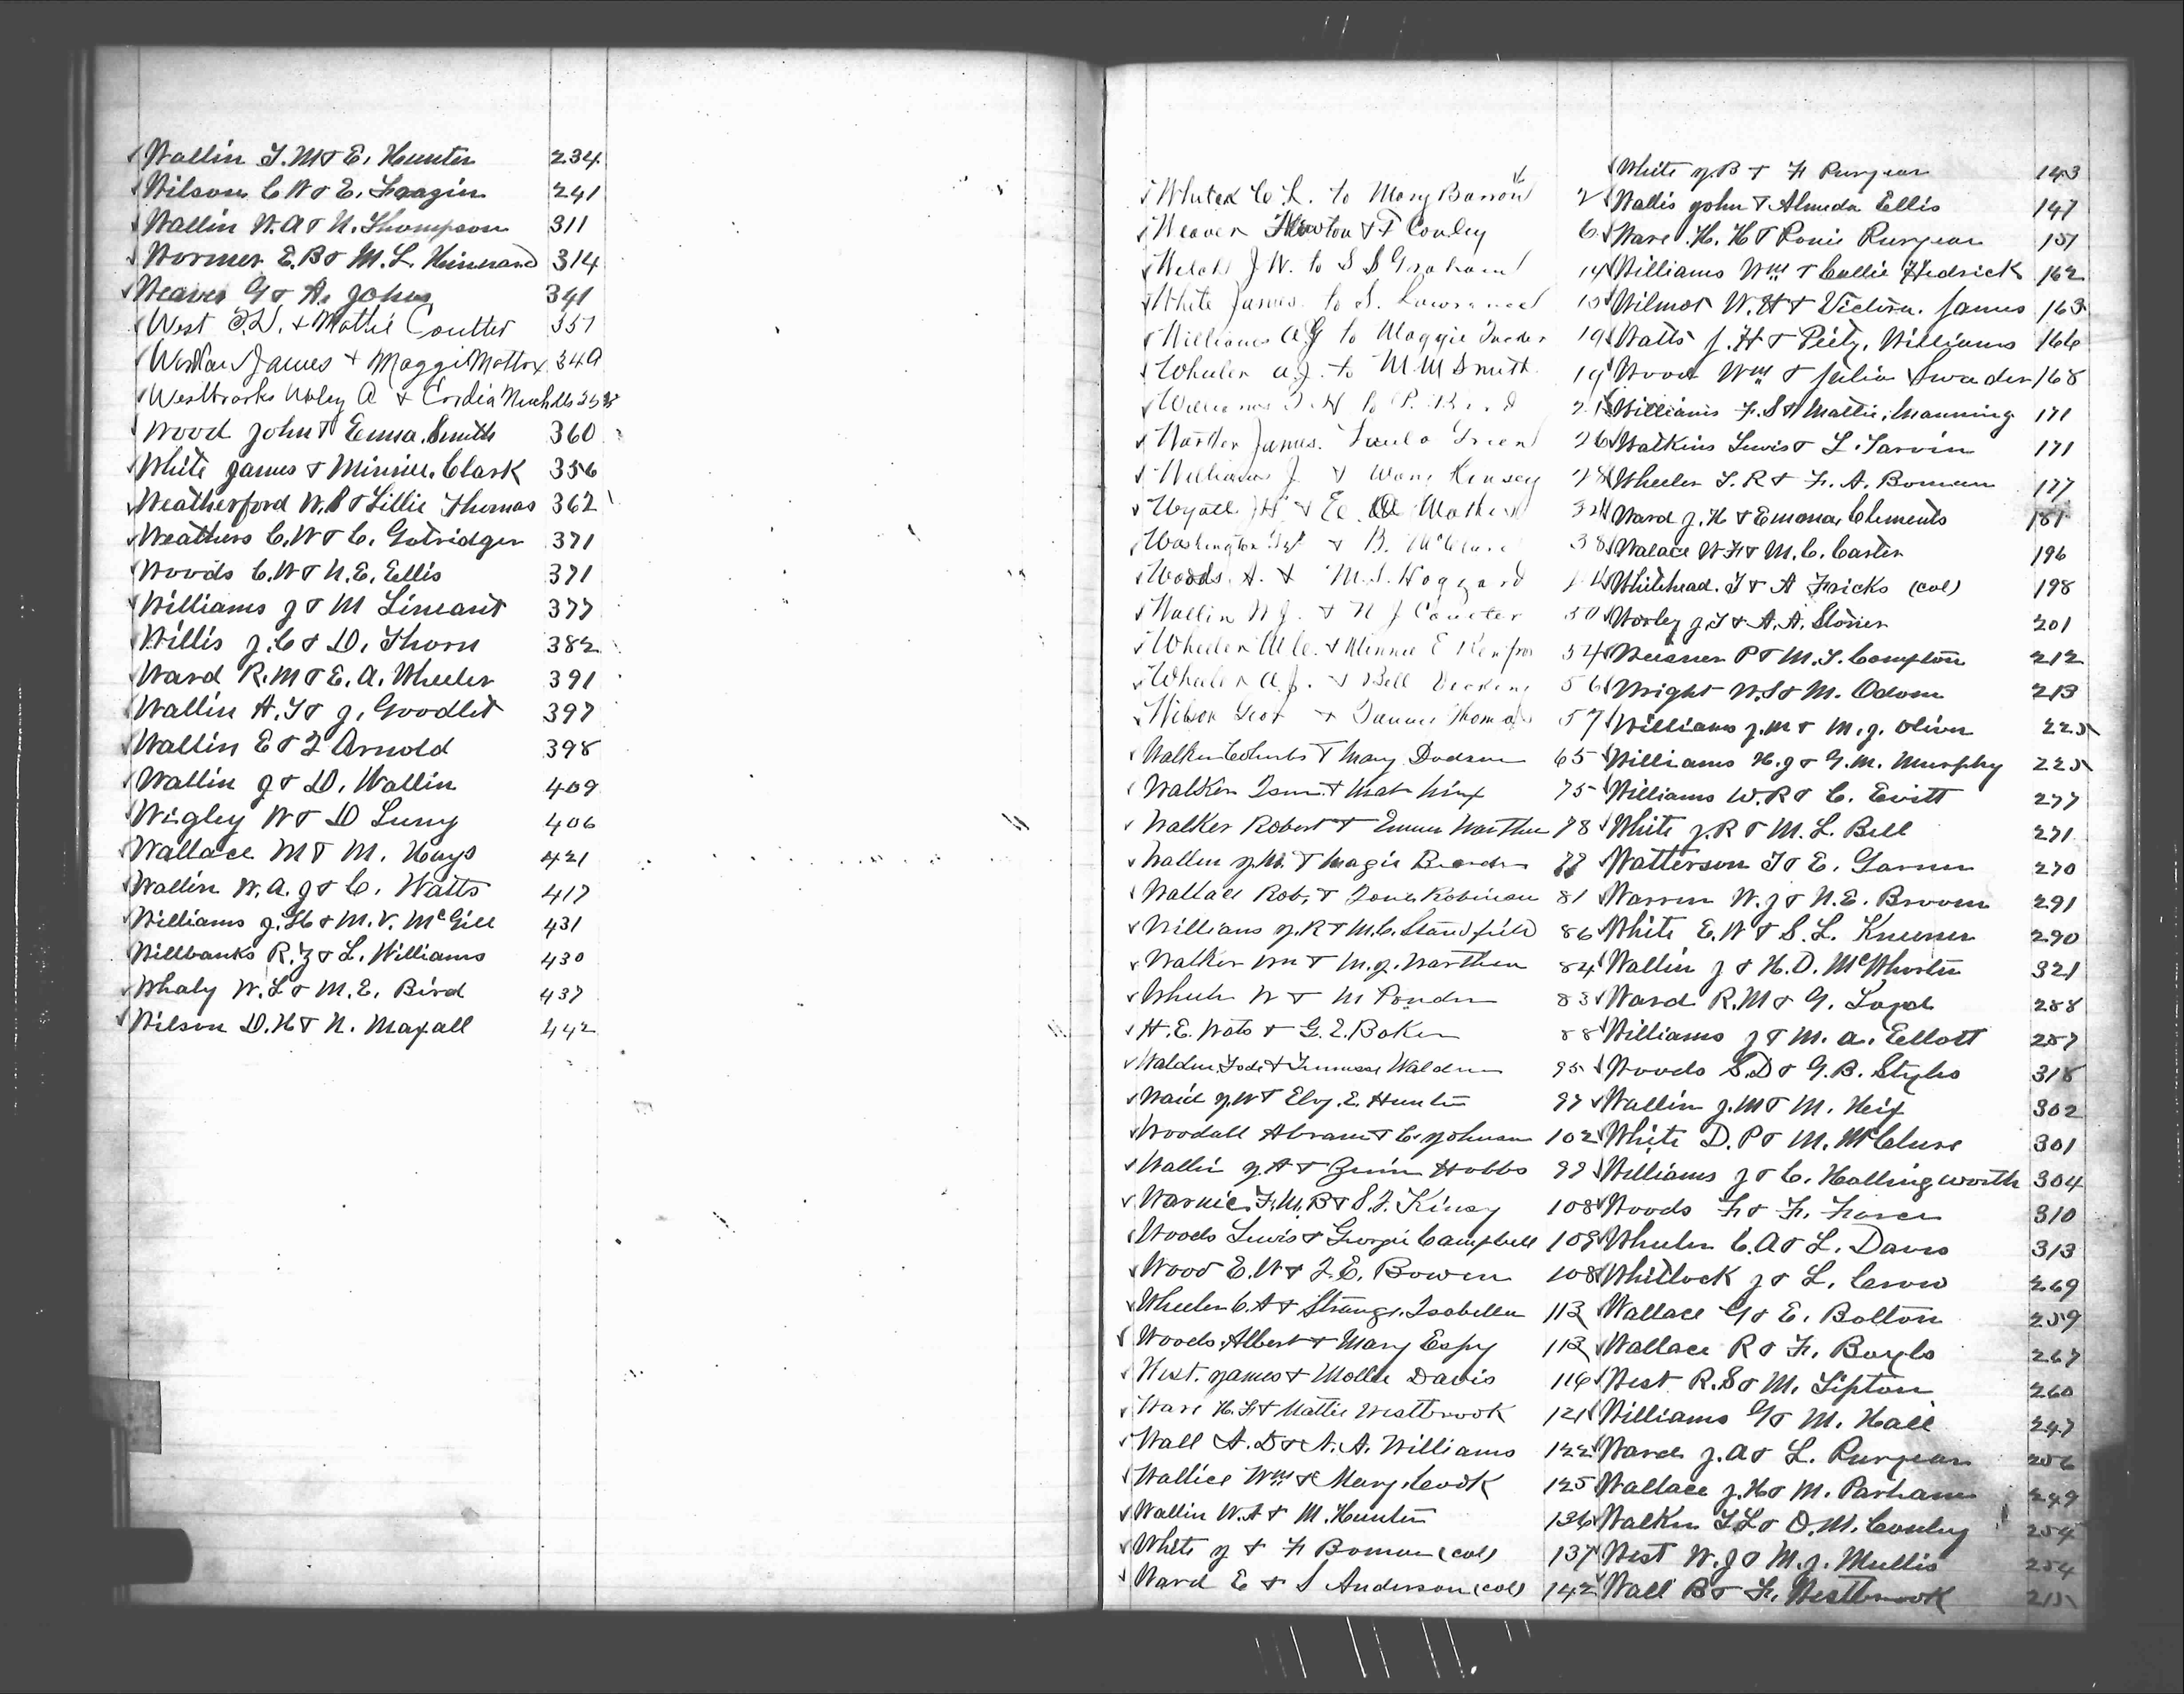 Wallin T. M & E. Hunter 234
Wilson C W & E. Feagin 241
Wallin W. A & N. Thompson 311
Wormer E. B & M. L. 314
Weaver G & A. Johns 341
West & Mattie Coulter 351
James & Maggie Mattox 349
Westbrooks A & Cordia
Wood John & Emma Smith 360
White James & Minnie Clark 356
Weatherford W. R & Lillie Thomas 362
Weathers C. W & C. Gutridger 371
Woods C. W & N. E. Ellis 371
Williams J & M Lineant 377
Willis J. C & D. Thorn 382
Ward R. M & E. A. Wheeler 391
Wallin A. T & J. Goodlet 397
Wallin E & Z Arnold 398
Wallin J & D. Wallin 409
Wigley W & D Luny 406
Wallace M & M. Hays 421
Wallin W. A. J & C. Watts 417
Williams J. H & M. V. McGill 431
Willbanks R. Z & L. Williams 430
Whaly W. L & M. E. Bird 437
Wilson D. H & N. Maxall 442
C. L. to Mary Barron 2
Weaver Newton & F Conley 6
Welch J. W. to S S Graham 14
White James to S. Lawrence 15
Williams A G to Maggie 19
Wheeler A. J. to M M Smith 19
Williams 21
James 26
Williams J. & Kinsey 28
Wyatt J H & E. Mathis
Washington & B. McClure 38
Woods A. & M. S. Hoggard
Wallin N J. & N J Coulter 50
Wheeler M C. & Minnie E Renfro 54
Wheeler A. J. & Bell 56
Wilson Geo & Fannie Thomas 57
Walker & Mary Dodson 65
Walker & Mat 75
Walker Robert & Emma Warthen 78
Wallin J. M. & Magie
Wallace Rob. & Robinson 81
Williams J. R & M. C. Standfield 86
Walker Wm & M. J. Warthen 84
Wheeler W & M Ponder 83
H. E. Wats & G. E. Baker 88
Walden & Walden 95
Waid J. W & Elvy. E. Hunter 97
Woodall Abram & C. Johnson 102
Wallin J. A & Hobbs 99
F. M. B & S. J. Kinsy 108
Woods Lewis & Georgie Campbell 109
Wood E. W & J. E. Bowen 108
Wheeler C. A & Strange, Isabella 112
Woods Albert & Mary Espy 112
West. James & Mollie Davis 116
Ware H. H & Mattie Westbrook 121
Wall A. D & N. A. Williams 122
Wallice Wm & Mary Cook 125
Wallin W. A & M. Hunter 136
White J & F Boman (col) 137
Ward E & S Anderson (col) 142
White J. B & F. Puryear 143
Wallis John & Almeda Ellis 147
Ware H. H & Ronie Puryear 151
Williams Wm & Callie Hedrick 162
Wilmot W. H & Victora James 163
Watts J. H & Piety Williams 166
Wood Wm & Julia Swader 168
Williams F. S & Mattie Manning 171
Watkins Lewis & L. Tarvin 171
Wheeler T. R & F. A. Boman 177
Ward J. H & Emma Clements 181
Walace W. F & M. C. Carter 196
Whitehead. T & A Fricks (col) 198
Worley J. T & A. A. Stoner 201
P & M. T. Compton 212
Wright W. S & M. Odom 213
Williams J. M & M. J. Oliver 225
Williams H. J & G. M. Murphy 225
Williams W. R & C. Evitt 277
White J. R & M. L. Bell 271
Watterson T & E. Garner 270
Warren W. J & N. E. Broom 291
White E. W & S. L. 290
Wallin J & H. D. McWhorter 321
Ward R. M & G. Loyd 288
Williams J & M. A. Ellott 287
Woods S. D & G. B. Styles 318
Wallin J. M & M. 302
White D. P & M. McClure 301
Williams J & C. Hallingworth 304
Woods F. & F. 310
Wheeler C. A & L. Davis 313
Whitlock J & L. Crow 269
Wallace G & E. Bolton 259
Wallace R & F. Boyls 267
West R. S & M. Tipton 260
Williams G & M. Hall 247
Ward J. A & L. Puryear 256
Wallace J. H & M. Parham 249
Walker T. L & O. M. Conley 254
West W. J & M. J. Mullis 254
Wall B & F. Westbrook